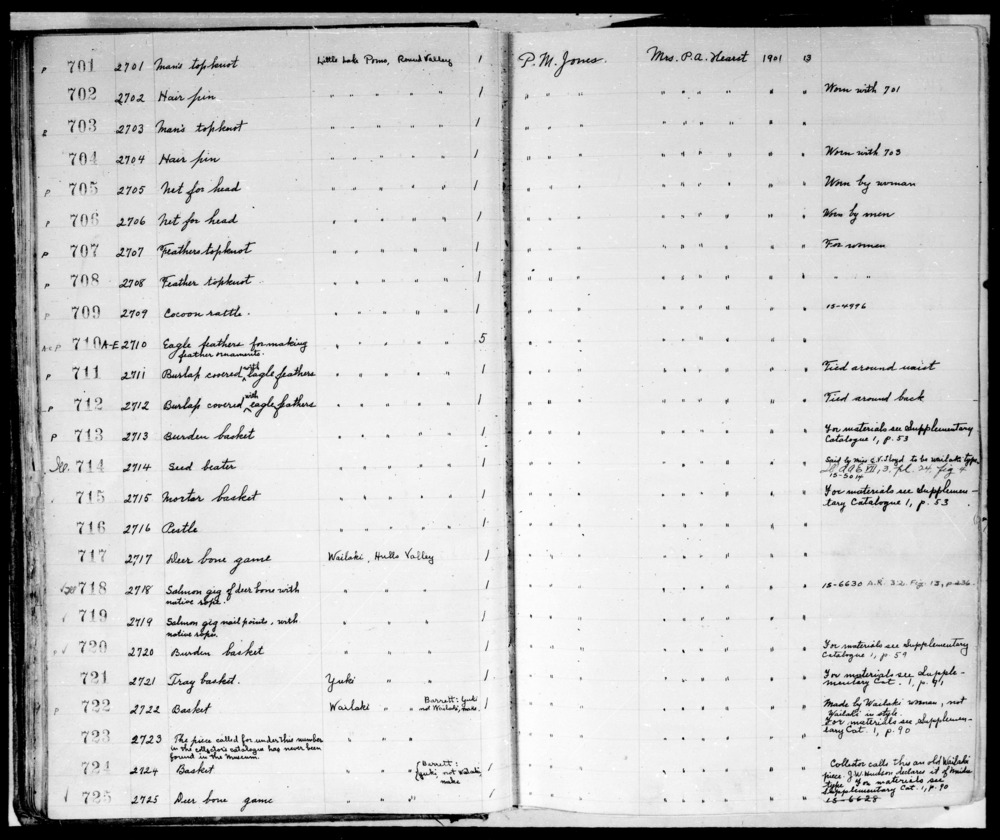 P 701 2701 Man's topknot Little Lake Pomo, Round Valley 1 P. M. Jones. Mrs. P. A. Hearst 1901 13
702 2702 Hair pin " " " " 1 " " " " " " " " " Worn with 701
703 2703 Man's topknot " " " " 1 " " " " " " " " "
704 2704 Hair pin " " " " 1 " " " " " " " " " Worn with 703
P 705 2705 Net for head " " " " 1 " " " " " " " " " Worn by woman
P 706 2706 Net for head " " " " 1 " " " " " " " " " Worn by men
P 707 2707 Feathers topknot " " " " 1 " " " " " " " " " For woman
P 708 2708 Feather topknot " " " " 1 " " " " " " " " " " "
P 709 2709 Cocoon rattle. " " " " 1 " " " " " " " " " 15-4996
P 710 A-E 2710 Eagle feathers for making " " " " 5 " " " " " " " " "
feather ornaments.
P 711 2711 Burlap covered with eagle feathers " " " " 1 " " " " " " " " " Tied around waist
P 712 2712 Burlap covered with eagle feathers " " " " 1 " " " " " " " " " Tied around back
P 713 2713 Burden basket " " " " 1 " " " " " " " " " For materials see Supplementary
Catalogue 1, p. 53
714 2714 Seed beater " " " " 1 " " " " " " " " " Said by Miss to be Wailaki type
VII, 3, pl. 24 fig 4
15-5014
715 2715 Mortar basket " " " " 1 " " " " " " " " " For materials see Supplemen-
tary Catalogue 1, p. 53
716 2716 Pestle " " " " 1 " " " " " " " " "
717 2717 Deer bone game Wailaki, Hulls Valley 1 " " " " " " " " "
718 2718 Salmon gig of deer bone with " " " 1 " " " " " " " " " 15-6630 A.R. 32. Fig. 13, p.
native rope.
719 2719 Salmon gig nail points, with " " " 1 " " " " " " " " "
native rope.
720 2720 Burden basket " " " 1 " " " " " " " " " For materials see Supplementary
Catalogue 1, p. 59
721 2721 Tray basket. Yuki " " 1 " " " " " " " " " For materials see Supple-
mentary Cat. 1, p. 91
P 722 2722 Basket Wailaki " " Barrett: Yuki 1 " " " " " " " " " Made by Wailaki woman, not
not Wailaki make. Wailaki in style.
For materials see Supplemen-
tary Cat. 1, p. 90
723 2723 The piece called for under this number " " " " " " " " " " " "
in the collector's catalogue has never been
found in the museum.
724 2724 Basket " " " Barrett: 1 " " " " " " " " " Collector calls this an old Wailaki
Yuki not Wailaki piece J. W. Hudson declares it of Maidu
make type. For materials see
Supplementary Cat. 1, p. 90
725 2725 Deer bone game " " " 1 " " " " " " " " " 15-6628